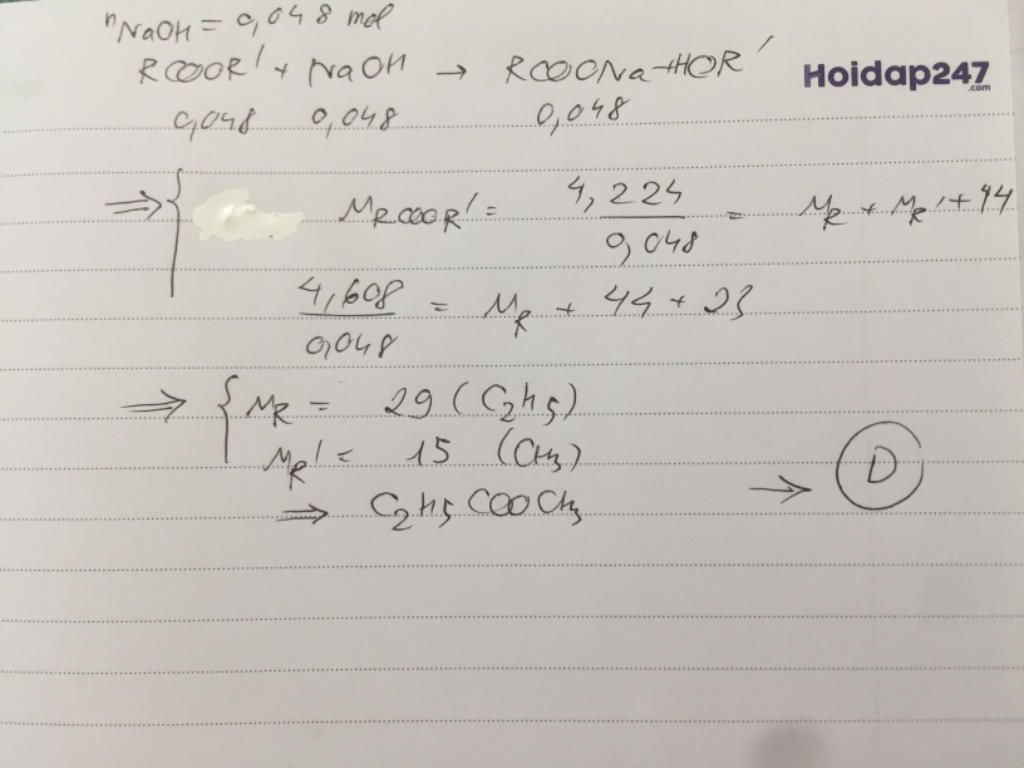 nNaOH = 0,048 mol
RCOOR' + NaOH → RCOONa + HOR'
Hoidap247
.com
0,048 0,048 0,048
⇒ { MRCOOR' = 4,224 / 0,048 = MR + MR' + 44
4,608 / 0,048 = MR + 44 + 23
⇒ { MR = 29 (C2H5)
MR' = 15 (CH3)
⇒ C2H5COOCH3 → D